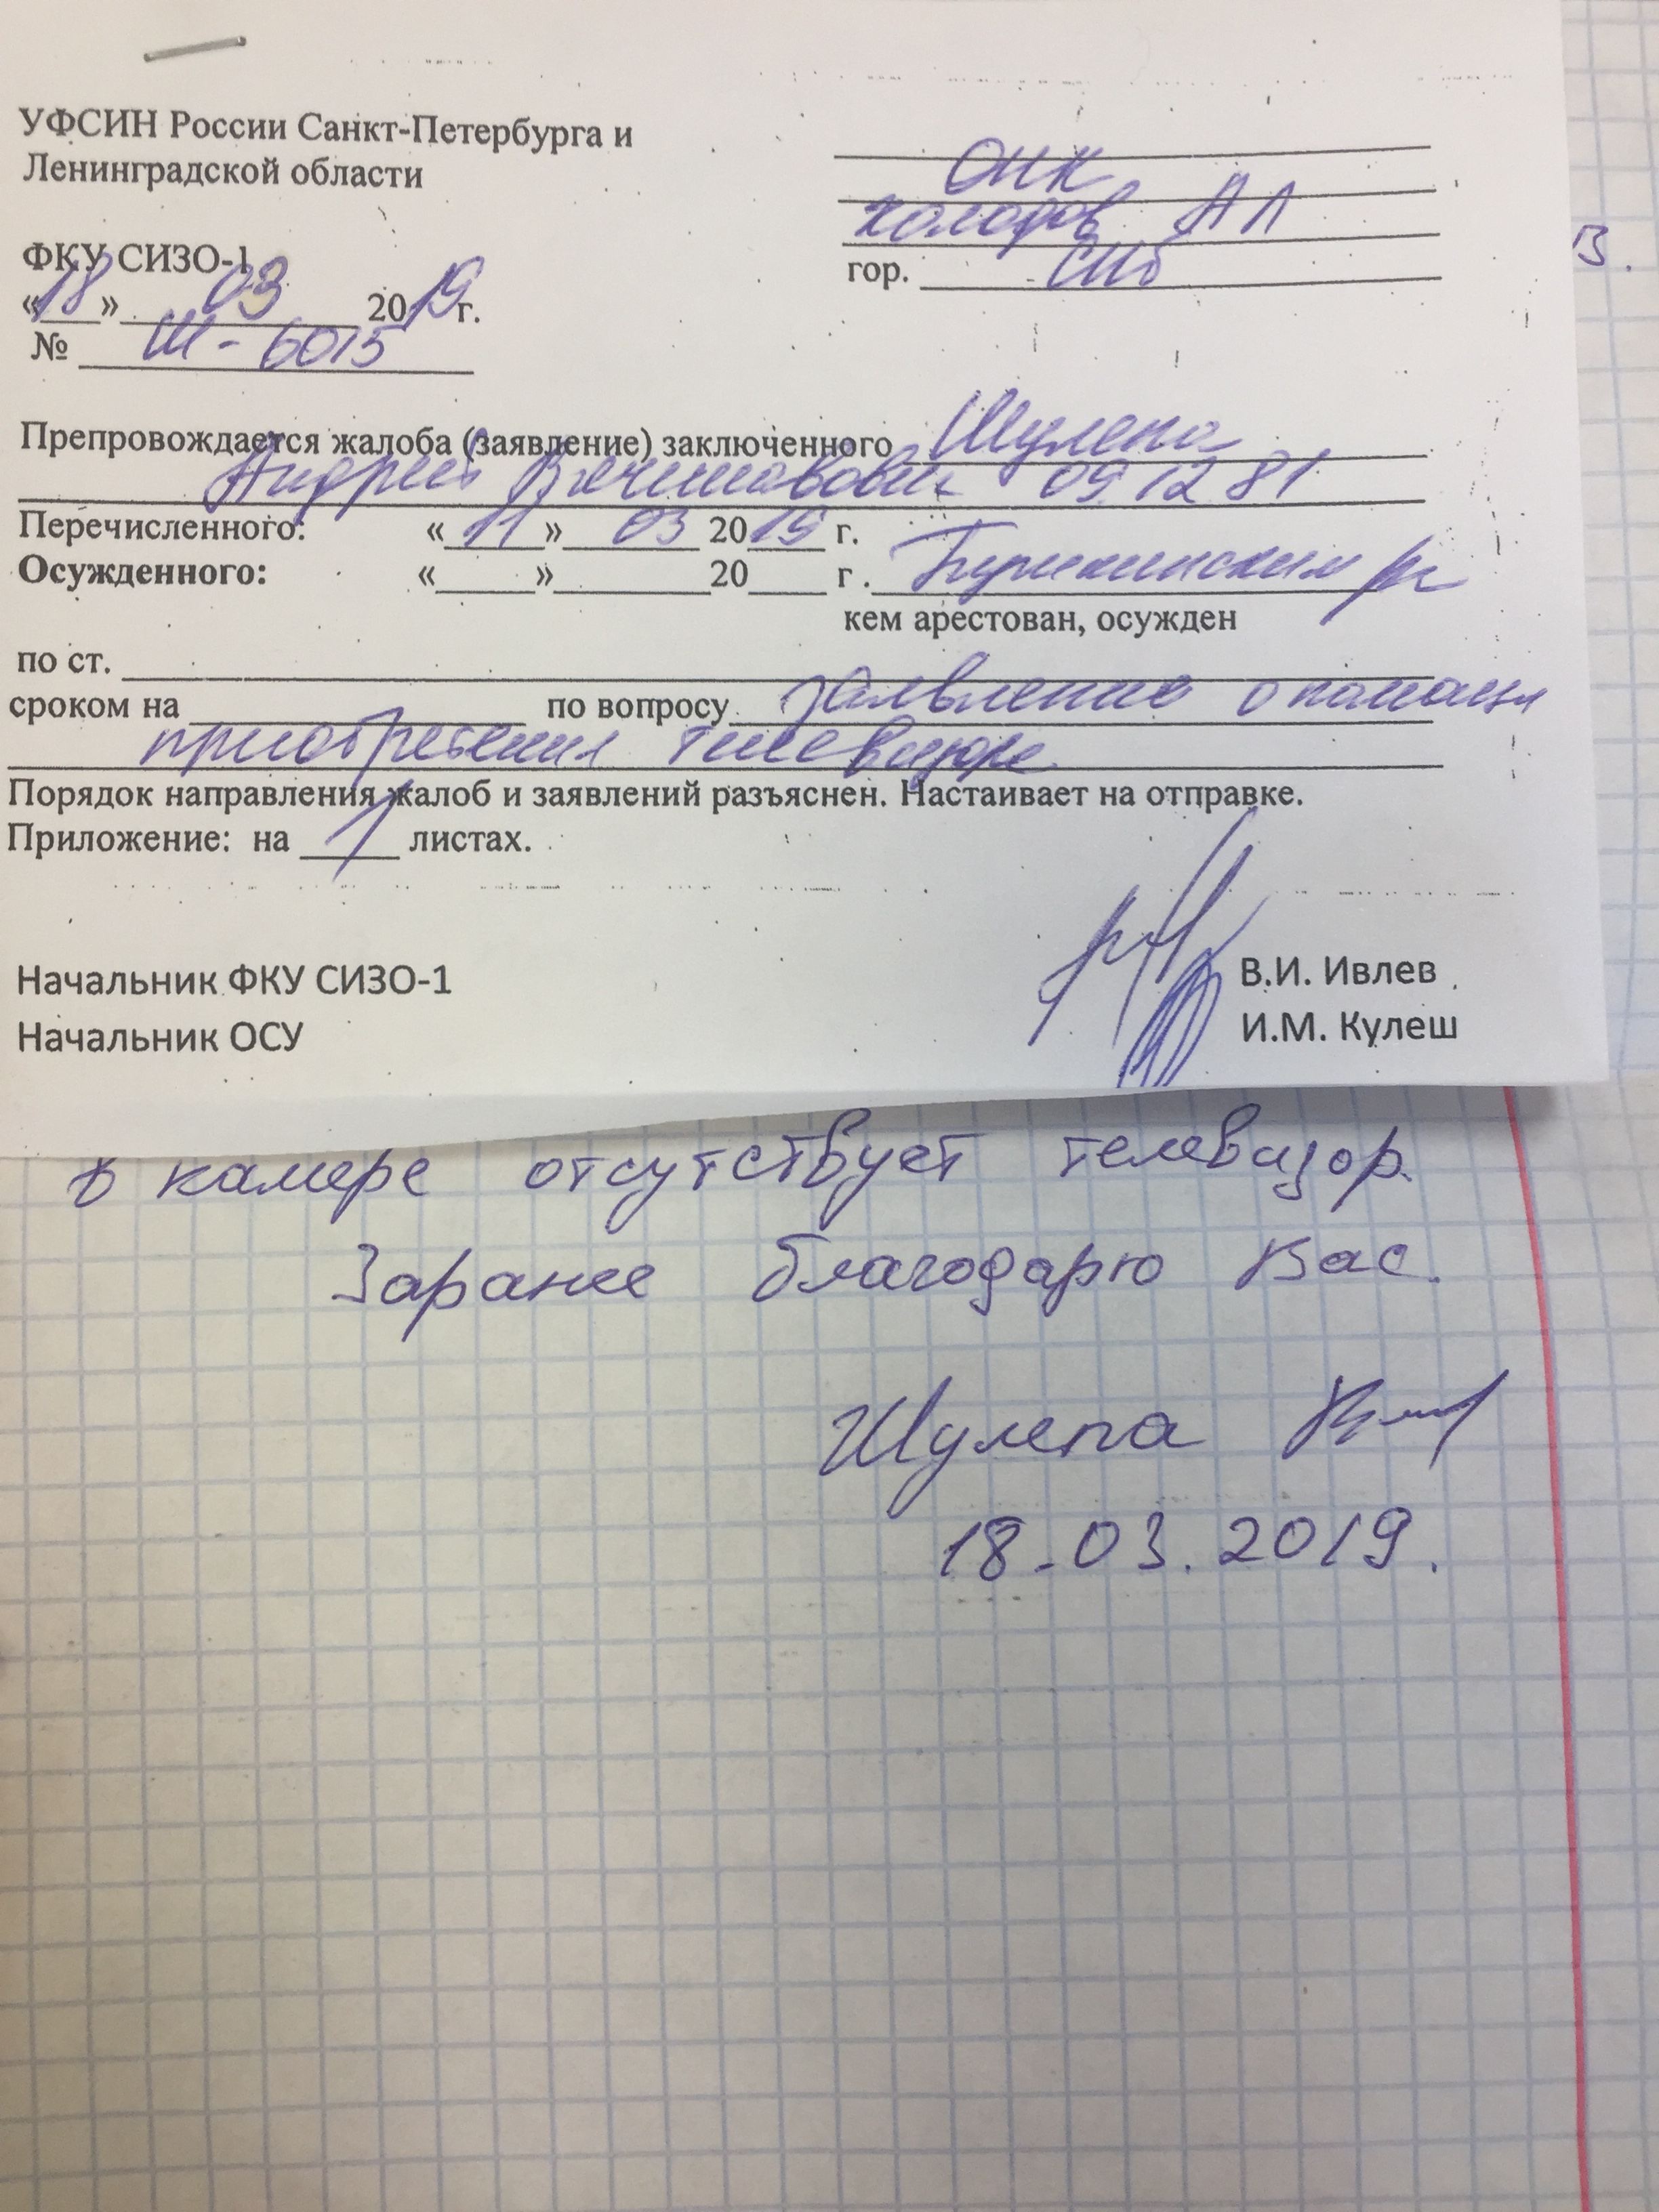 УФСИН России Санкт-Петербурга и
Ленинградской области
ОНК
Холодов А Л
гор. СПб
ФКУ СИЗО-1
«18» 03 2019 г.
№ Ш-6015
Препровождается жалоба (заявление) заключенного Шулепа
Андрей 09 12 81
Перечисленного: «11» 03 2019 г.
Осужденного: «____»________20____ г.
кем арестован, осужден
по ст.
сроком на по вопросу заявление о помощи
приобретения телевизора
Порядок направления жалоб и заявлений разъяснен. Настаивает на отправке.
Приложение: на 1 листах.
Начальник ФКУ СИЗО-1 В.И. Ивлев
Начальник ОСУ И.М. Кулеш
в камере отсутствует телевизор.
Заранее благодарю Вас.
Шулепа
18.03.2019.